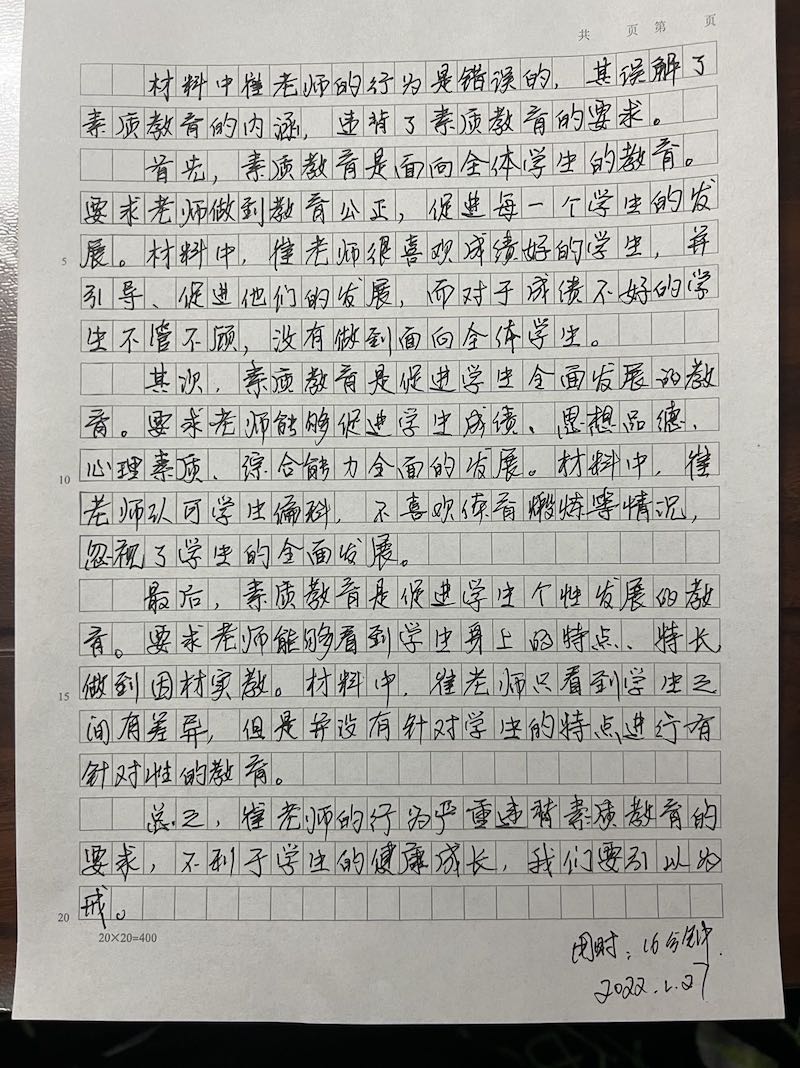 共 页 第 页
材料中崔老师的行为是错误的，其误解了
素质教育的内涵，违背了素质教育的要求。
首先，素质教育是面向全体学生的教育。
要求老师做到教育公正，促进每一个学生的发
5 展。材料中，崔老师很喜欢成绩好的学生，并
引导、促进他们的发展，而对于成绩不好的学
生不管不顾，没有做到面向全体学生。
其次，素质教育是促进学生全面发展的教
育。要求老师能够促进学生成绩、思想品德、
10 心理素质、综合能力全面的发展。材料中，崔
老师认可学生偏科，不喜欢体育煅炼等情况，
忽视了学生的全面发展。
最后，素质教育是促进学生个性发展的教
育。要求老师能够看到学生身上的特点、特长
15 做到因材实教。材料中，崔老师只看到学生之
间有差异，但是并没有针对学生的特点进行有
针对性的教育。
总之，崔老师的行为严重违背素质教育的
要求，不利于学生的健康成长，我们要引以为
20 戒。
20×20=400
用时：16分钟.
2022.1.27